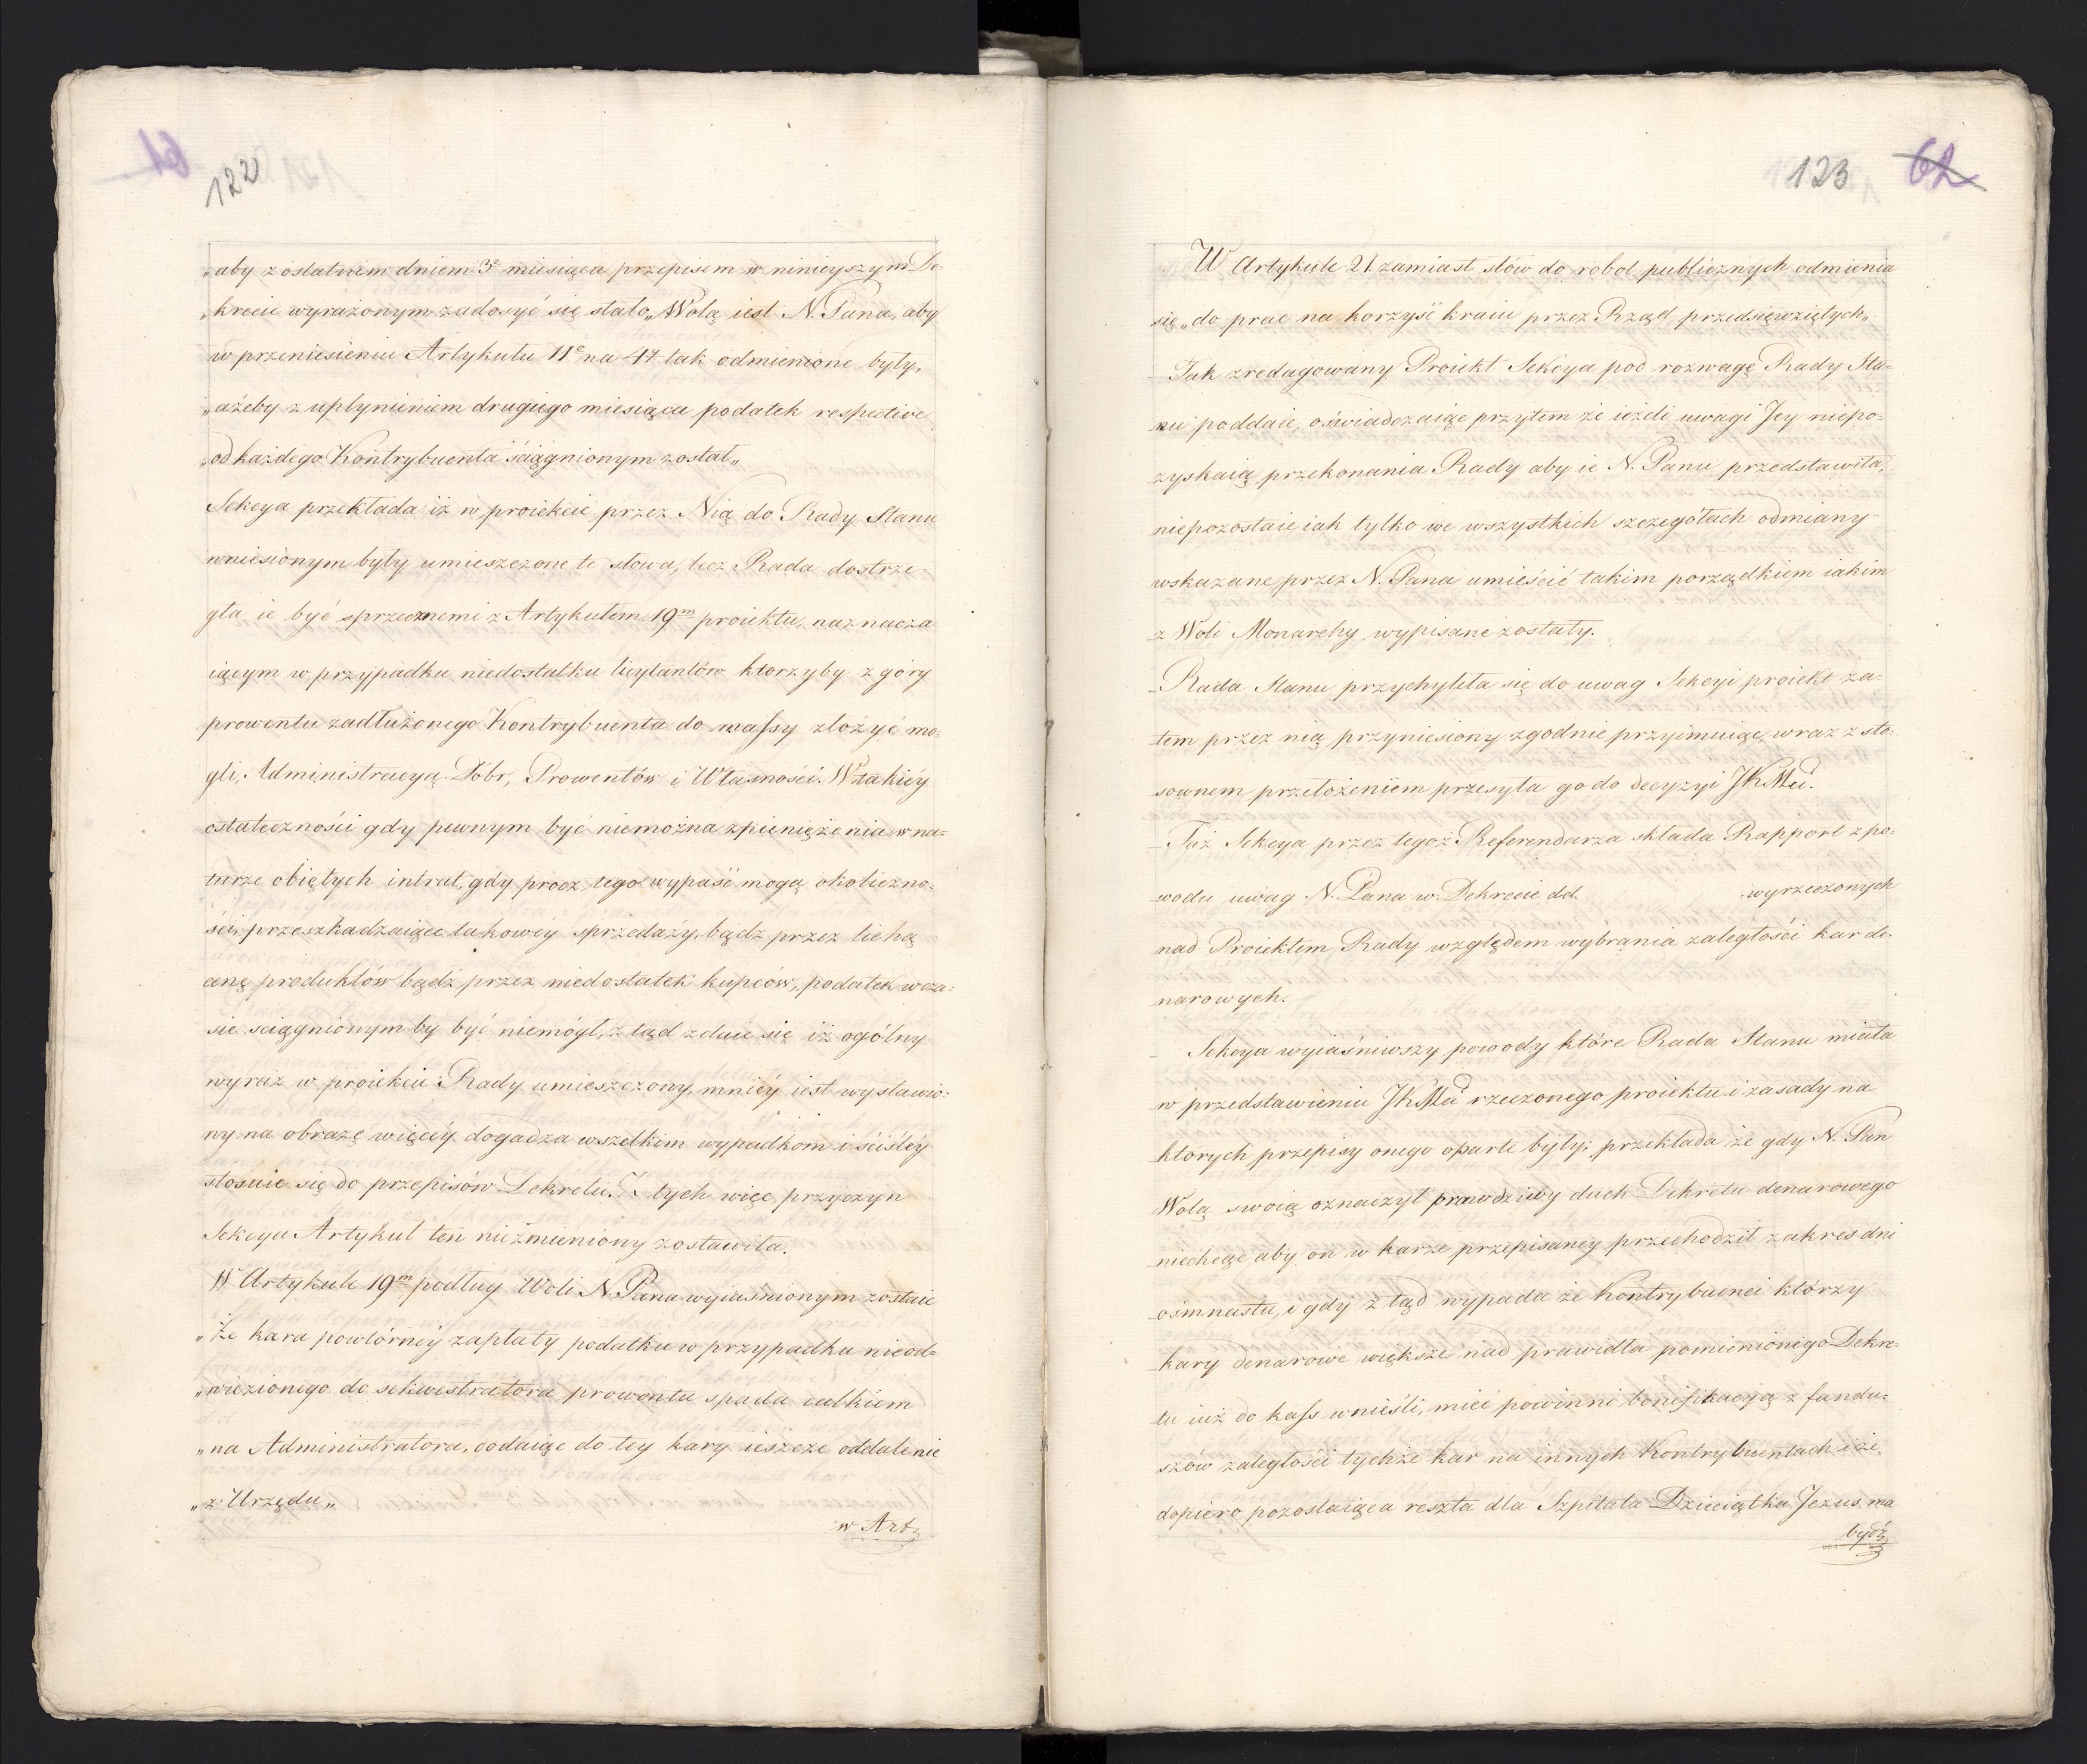 122
„aby z ostatnim dniem 3º miesiąca przepisem w ninieyszym De-
„krecie wyrażonym zadosyć się stało„ Wolą iest N. Pana, aby
w przeniesieniu Artykułu 11º na 47 tak odmienione były,
„ażeby z upłynieniem drugiego miesiąca podatek respective
„od każdego Kontrybuenta ściągnionym został„
Sekcya przekłada iż w proiekcie przez Nią do Rady Stanu
wniesionym były umieszczone te słowa, lecz Rada dostrze-
gła ie być sprzecznemi z Artykułem 19m proiektu, naznacza
iącym w przypadku niedostatku licytantów ktorzyby z góry
prowentu zadłużonego Kontrybuenta do massy złożyć mo-
gli, Administracyą Dóbr, Prowentów i Własności. W takiéy
ostateczności gdy pewnym być niemożna zpieniężenia w na-
turze obiętych intrat, gdy procz tego wypaść mogą okoliczno-
ści, przeszkadzaiące takowéy sprzedaży, bądz przez lichą
cenę produktów bądź przez niedostatek kupców, podatek wcza-
sie sciągnionym by być niemógł, z tąd zdaie się iż ogólny
wyraz w proiekcie Rady umieszczony, mniéy iest wystawio-
ny na obrazę więcéy dogadza wszelkim wypadkom i ściśléy
stosuie się do przepisów Dekretu. Z tych więc przyczyn
Sekcya Artykuł ten niezmieniony zostawiła.
W Artykule 19m podług Woli N. Pana wyiaśnionym zostaie
„że kara powtórnéy zapłaty podatku w przypadku nieod-
„wiezionego do sekwestratora prowentu spada całkiem
„na Administratora, dodaiąc do tey kary ieszcze oddalenie
„z Urzędu„
w Art:
123 62
W Artykule 21. zamiast słów do robot publicznych odmienia
się „do prac na korzyść kraiu przez Rząd przedsięwziętych„
Tak zredagowany Proiekt Sekcya pod rozwagę Rady Sta-
nu poddaie, oświadczaiąc przytem że ieżeli uwagi Jey niepo-
zyskaią przekonania Rady aby ie N. Panu przedstawiła,
niepozostaie iak tylko we wszystkich szczegółach odmiany
wskazane przez N. Pana umieścić takim porządkiem iakim
z Woli Monarchy wypisane zostały.
Rada Stanu przychyliła się do uwag Sekcyi proiekt za-
tem przez nią przyniesiony zgodnie przyimuiąc, wraz z sto-
sownem przełożeniem przesyła go do decyzyi JKMci.
Taż Sekcya przez tegoż Referendarza składa Rapport z po-
wodu uwag N. Pana w Dekrecie dd. wyrzeczonych
nad Proiektem Rady względem wybrania zaległości kar de-
narowych.
Sekcya wyiaśniwszy powody które Rada Stanu miała
w przedstawieniu JKMci rzeczonego proiektu i zasady na
których przepisy onego oparte były; przekłada że gdy N. Pan
Wolą swoią oznaczył prawdziwy duch Dekretu denarowego
niechcąc aby on w karze przepisaney przechodził zakres dni
ośmnastu, i gdy z tąd wypada że Kontrybuenci którzy
kary denarowe większe nad prawidła pomienionego Dekre-
tu iuż do kass wnieśli, mieć powinni bonifikacyą z fundu-
szów zaległości tychże kar na innych Kontrybuentach i że
dopiero pozostaiąca reszta dla Szpitala Dzieciątka Jezus ma
bydź